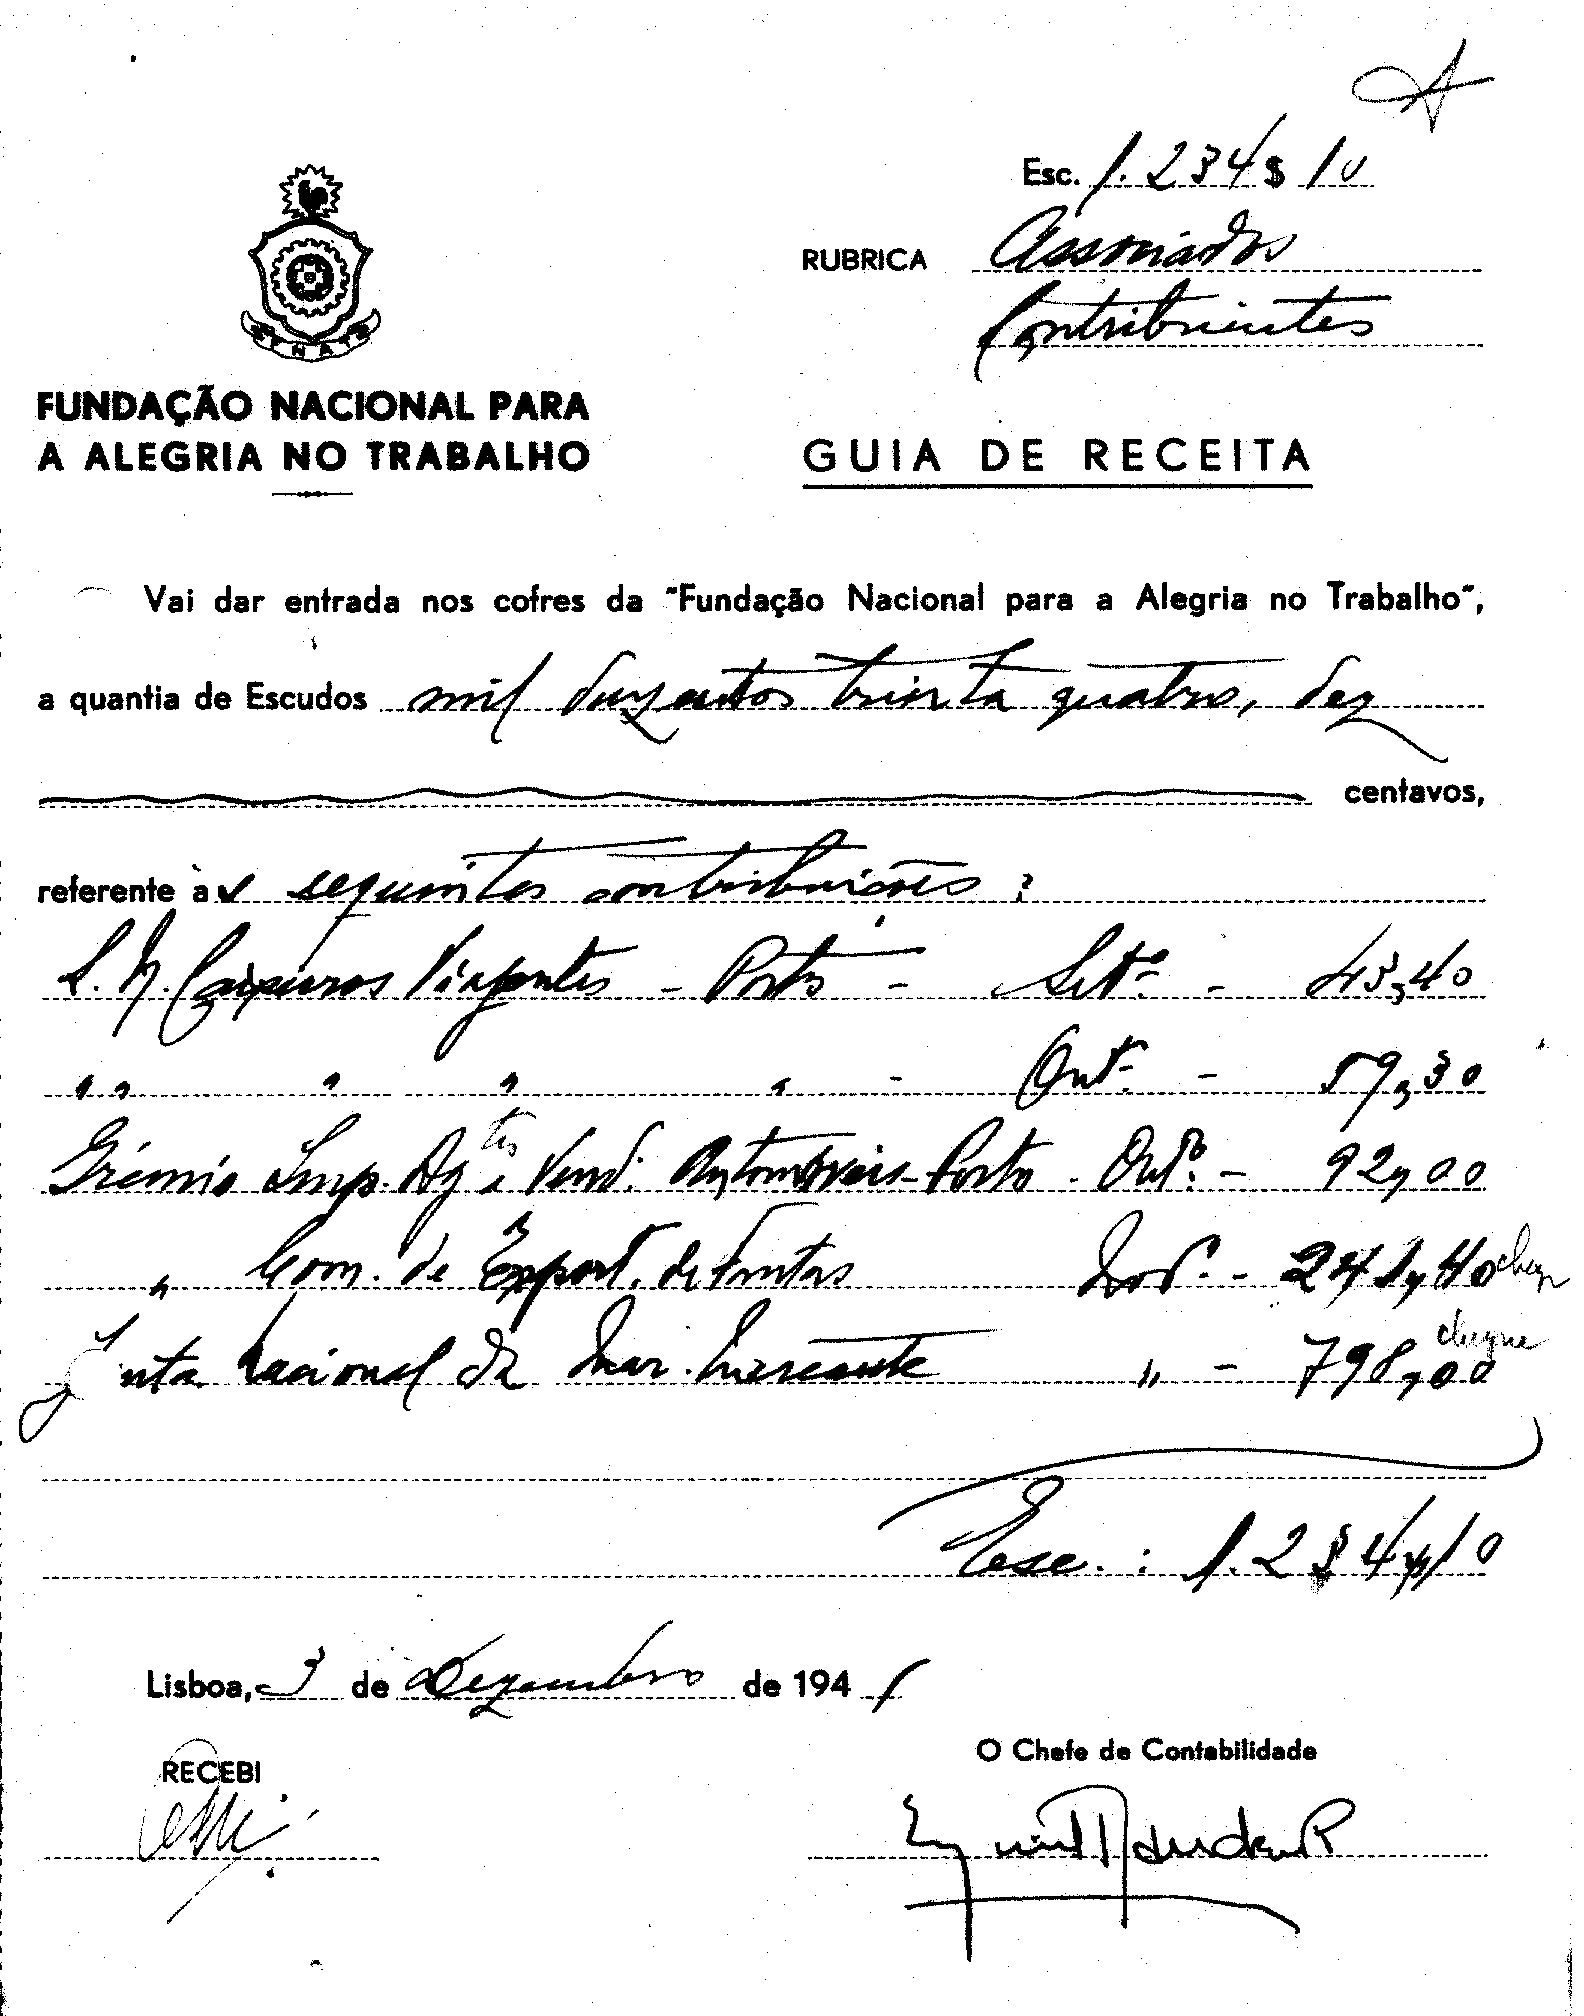 Esc. 1.234$10
RUBRICA Associados
Contribuintes
FNAT
FUNDAÇÃO NACIONAL PARA
A ALEGRIA NO TRABALHO
GUIA DE RECEITA
Vai dar entrada nos cofres da "Fundação Nacional para a Alegria no Trabalho",
a quantia de Escudos mil duzentos trinta quatro, dez
centavos,
referente às seguintes contribuições:
S. N. Caixeiros Viajantes - Porto - Setº - 43,40
" " " " " - Outº - 59,30
Grémio Imp. Agtes e Vend. Automóveis - Porto - Outº - 92,00
" Com. de Export. de Frutas Novº - 241,40 cheq
Junta Nacional da Mar. Mercante " - 798,00 cheque
Esc.: 1.234$10
Lisboa, 3 de Dezembro de 1941
RECEBI
O Chefe de Contabilidade